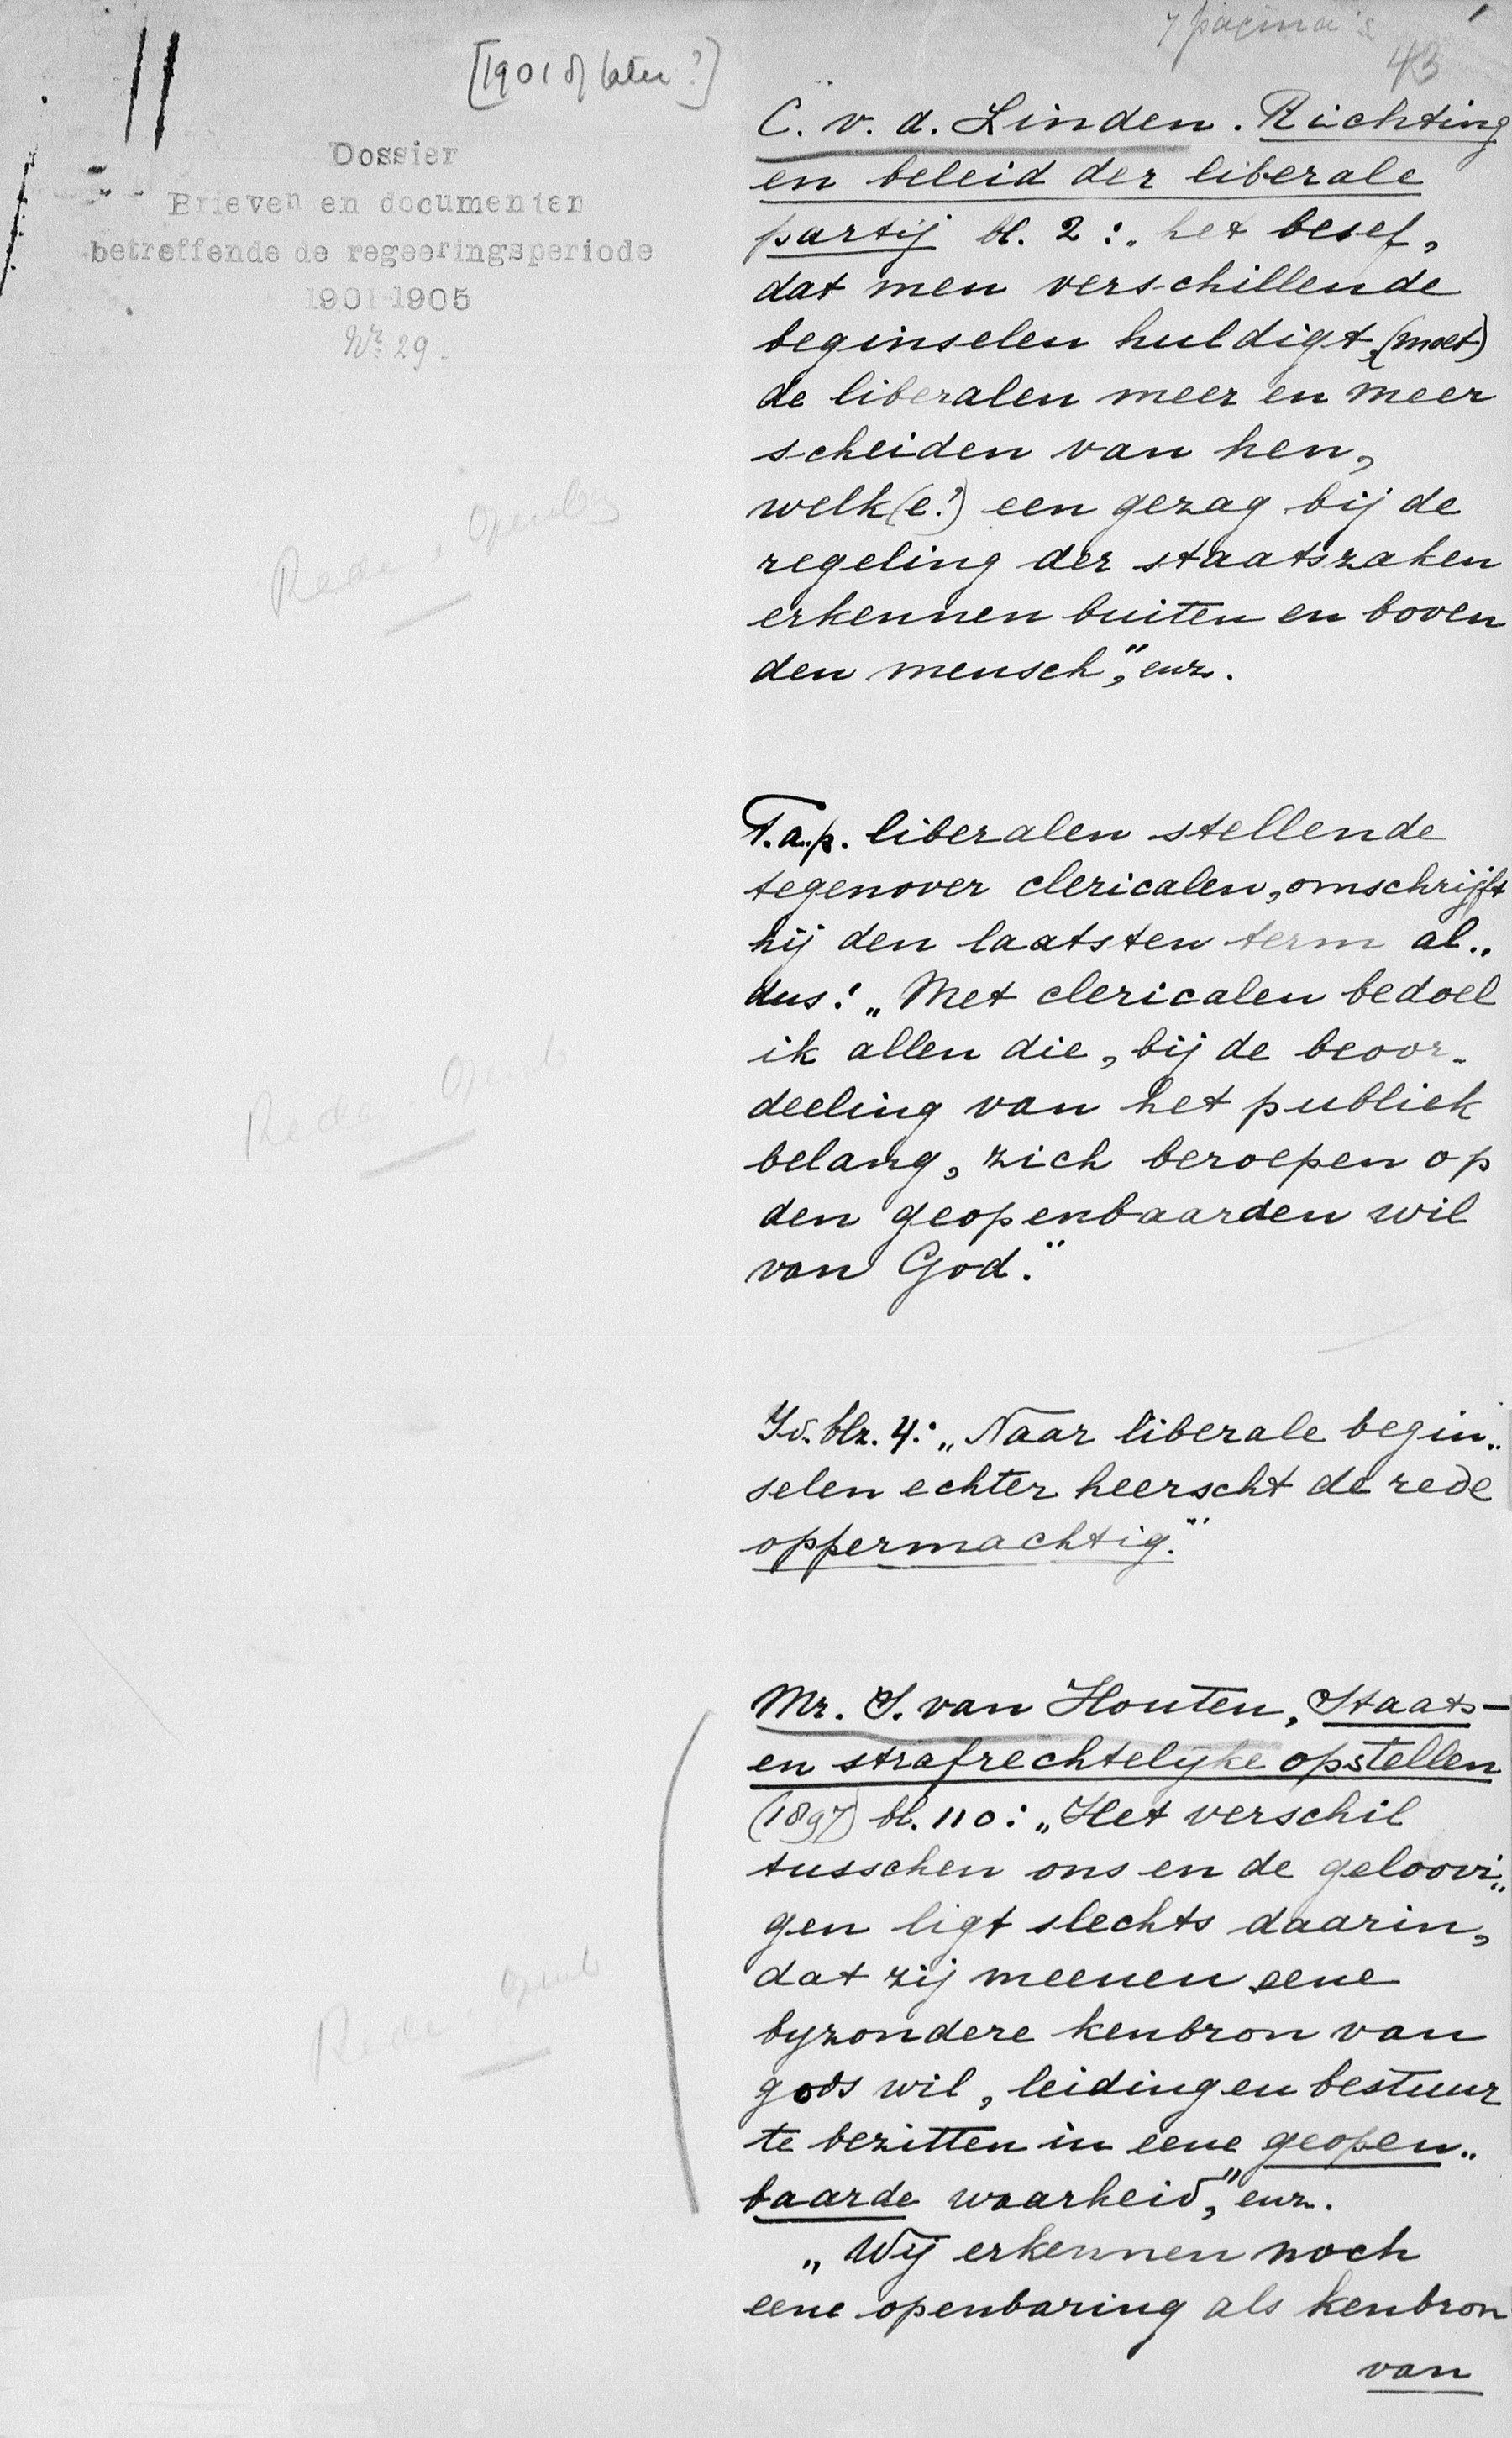 7 pagina's
43
[1901 of later?]
Dossier
Brieven en documenten
betreffende de regeeringsperiode
1901-1905
Nr. 29.
C. v. d. Linden. Richting
en beleid der liberale
partij bl. 2: „het besef,
dat men verschillende
beginselen huldigt, (moet)
de liberalen meer en meer
scheiden van hen,
welk(e?) een gezag bij de
regeling der staatszaken
erkennen buiten en boven
den mensch," enz.
Rede . Openbg
T.a.p. liberalen stellende
tegenover clericalen, omschrijft
hij den laatsten term al„
dus: „Met clericalen bedoel
ik allen die, bij de beoor-
deeling van het publiek
belang, zich beroepen op
den geopenbaarden wil
van God."
Rede . Openb
Id. blz. 4: „Naar liberale begin„
selen echter heerscht de rede
oppermachtig."
Mr. S. van Houten, Staats-
en strafrechtelijke opstellen
(1897) bl. 110: „Het verschil
tusschen ons en de geloovi„
gen ligt slechts daarin,
dat zij meenen eene
byzondere kenbron van
gods wil, leiding en bestuur
te bezitten in eene geopen„
baarde waarheid," enz.
Rede . Openb
„Wij erkennen noch
eene openbaring als kenbron
van